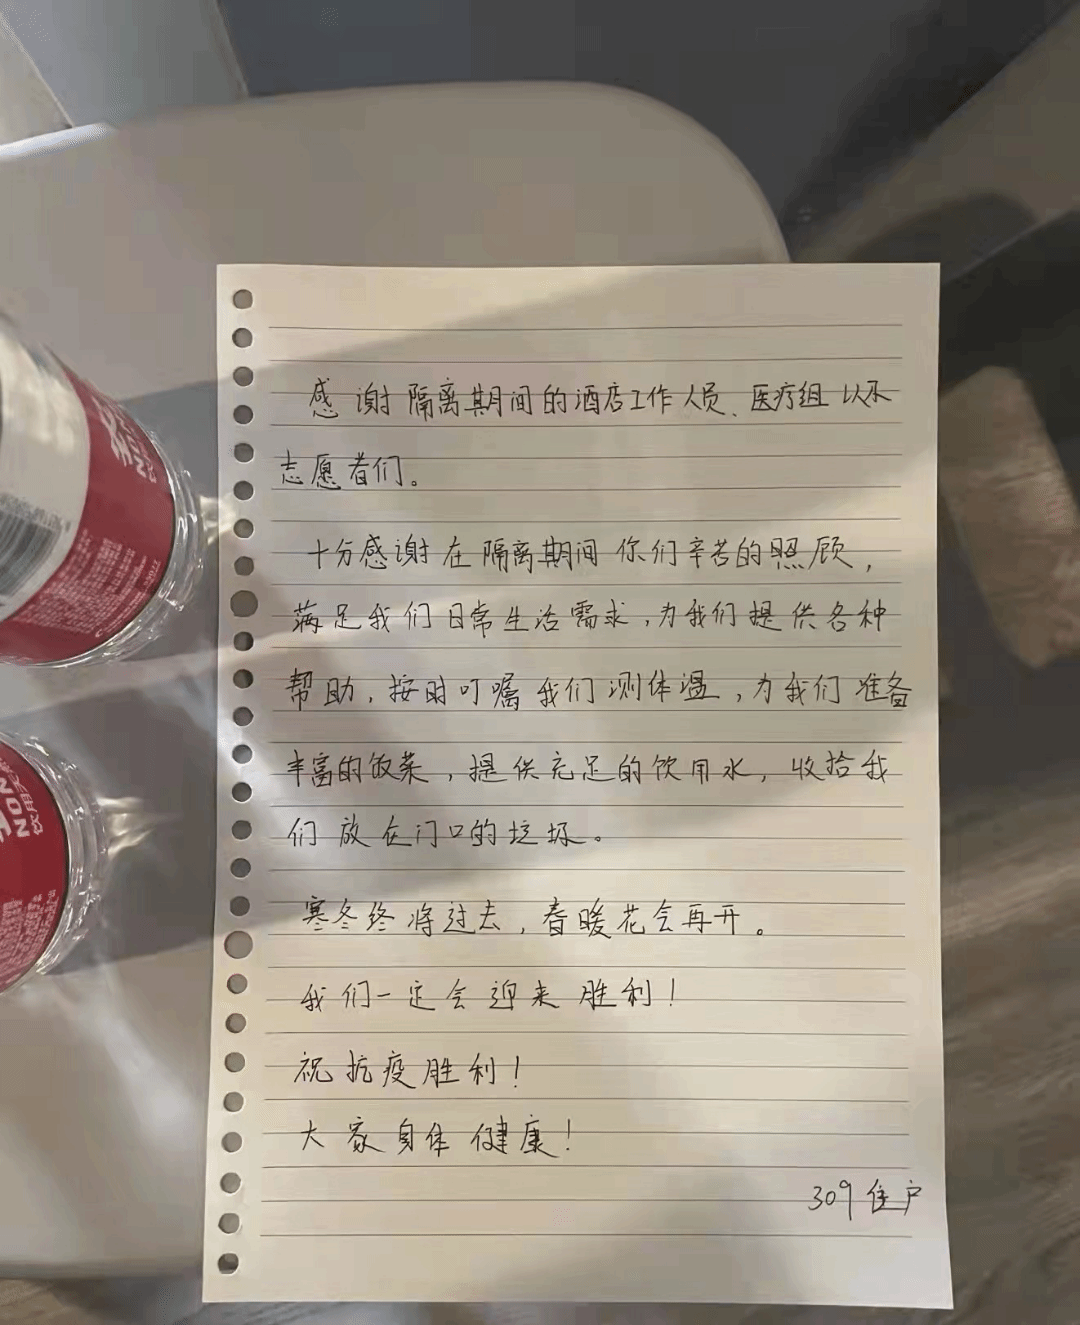 感谢隔离期间的酒店工作人员、医疗组以及
志愿者们。
十分感谢在隔离期间你们辛苦的照顾，
满足我们日常生活需求，为我们提供各种
帮助，按时叮嘱我们测体温，为我们准备
丰富的饭菜，提供充足的饮用水，收拾我
们放在门口的垃圾。
寒冬终将过去，春暖花会再开。
我们一定会迎来胜利！
祝抗疫胜利！
大家身体健康！
309住户